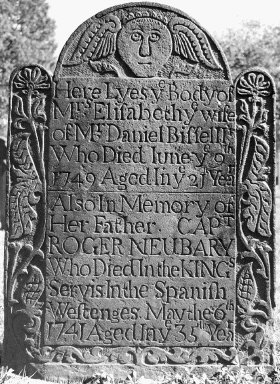 Here Lyes yᵉ Body of
Mʳˢ Elisabeth yᵉ wife
of Mʳ Daniel Bissell
Who Died Iune yᵉ 9ᵗʰ
1749 Aged In yᵉ Yeʳ
Also In Memory of
Her Father CAPᵗ
ROGER NEUBARY
Who Died In the KINGˢ
Servis In the Spanish
Westenges May the 6ᵗʰ
1741 Aged In yᵉ 35ᵗʰ Yeʳ